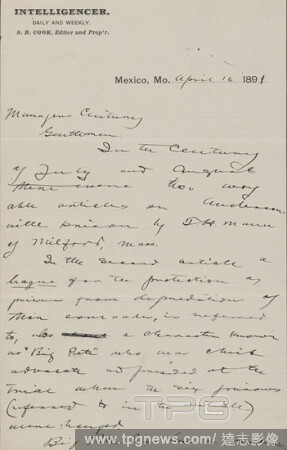 INTELLIGENCER.
DAILY AND WEEKLY.
S. B. COOK, Editor and Prop'r.
Mexico, Mo. April 16 1891
Managers Century
Gentlemen
In the Century
of July and August
there were two very
able articles on Anderson
ville prison by T. H. Mann
of Milford, Mass.
In the second article a
league for the protection of
prison from depredation of
their comrades, is referred
to, a character known
as "Big Pete" who was chief
advocate and presided at the
trial when the six prisoners
(referred to in the article)
were hanged
Big
TPG
www.tpgnews.com 達志影像